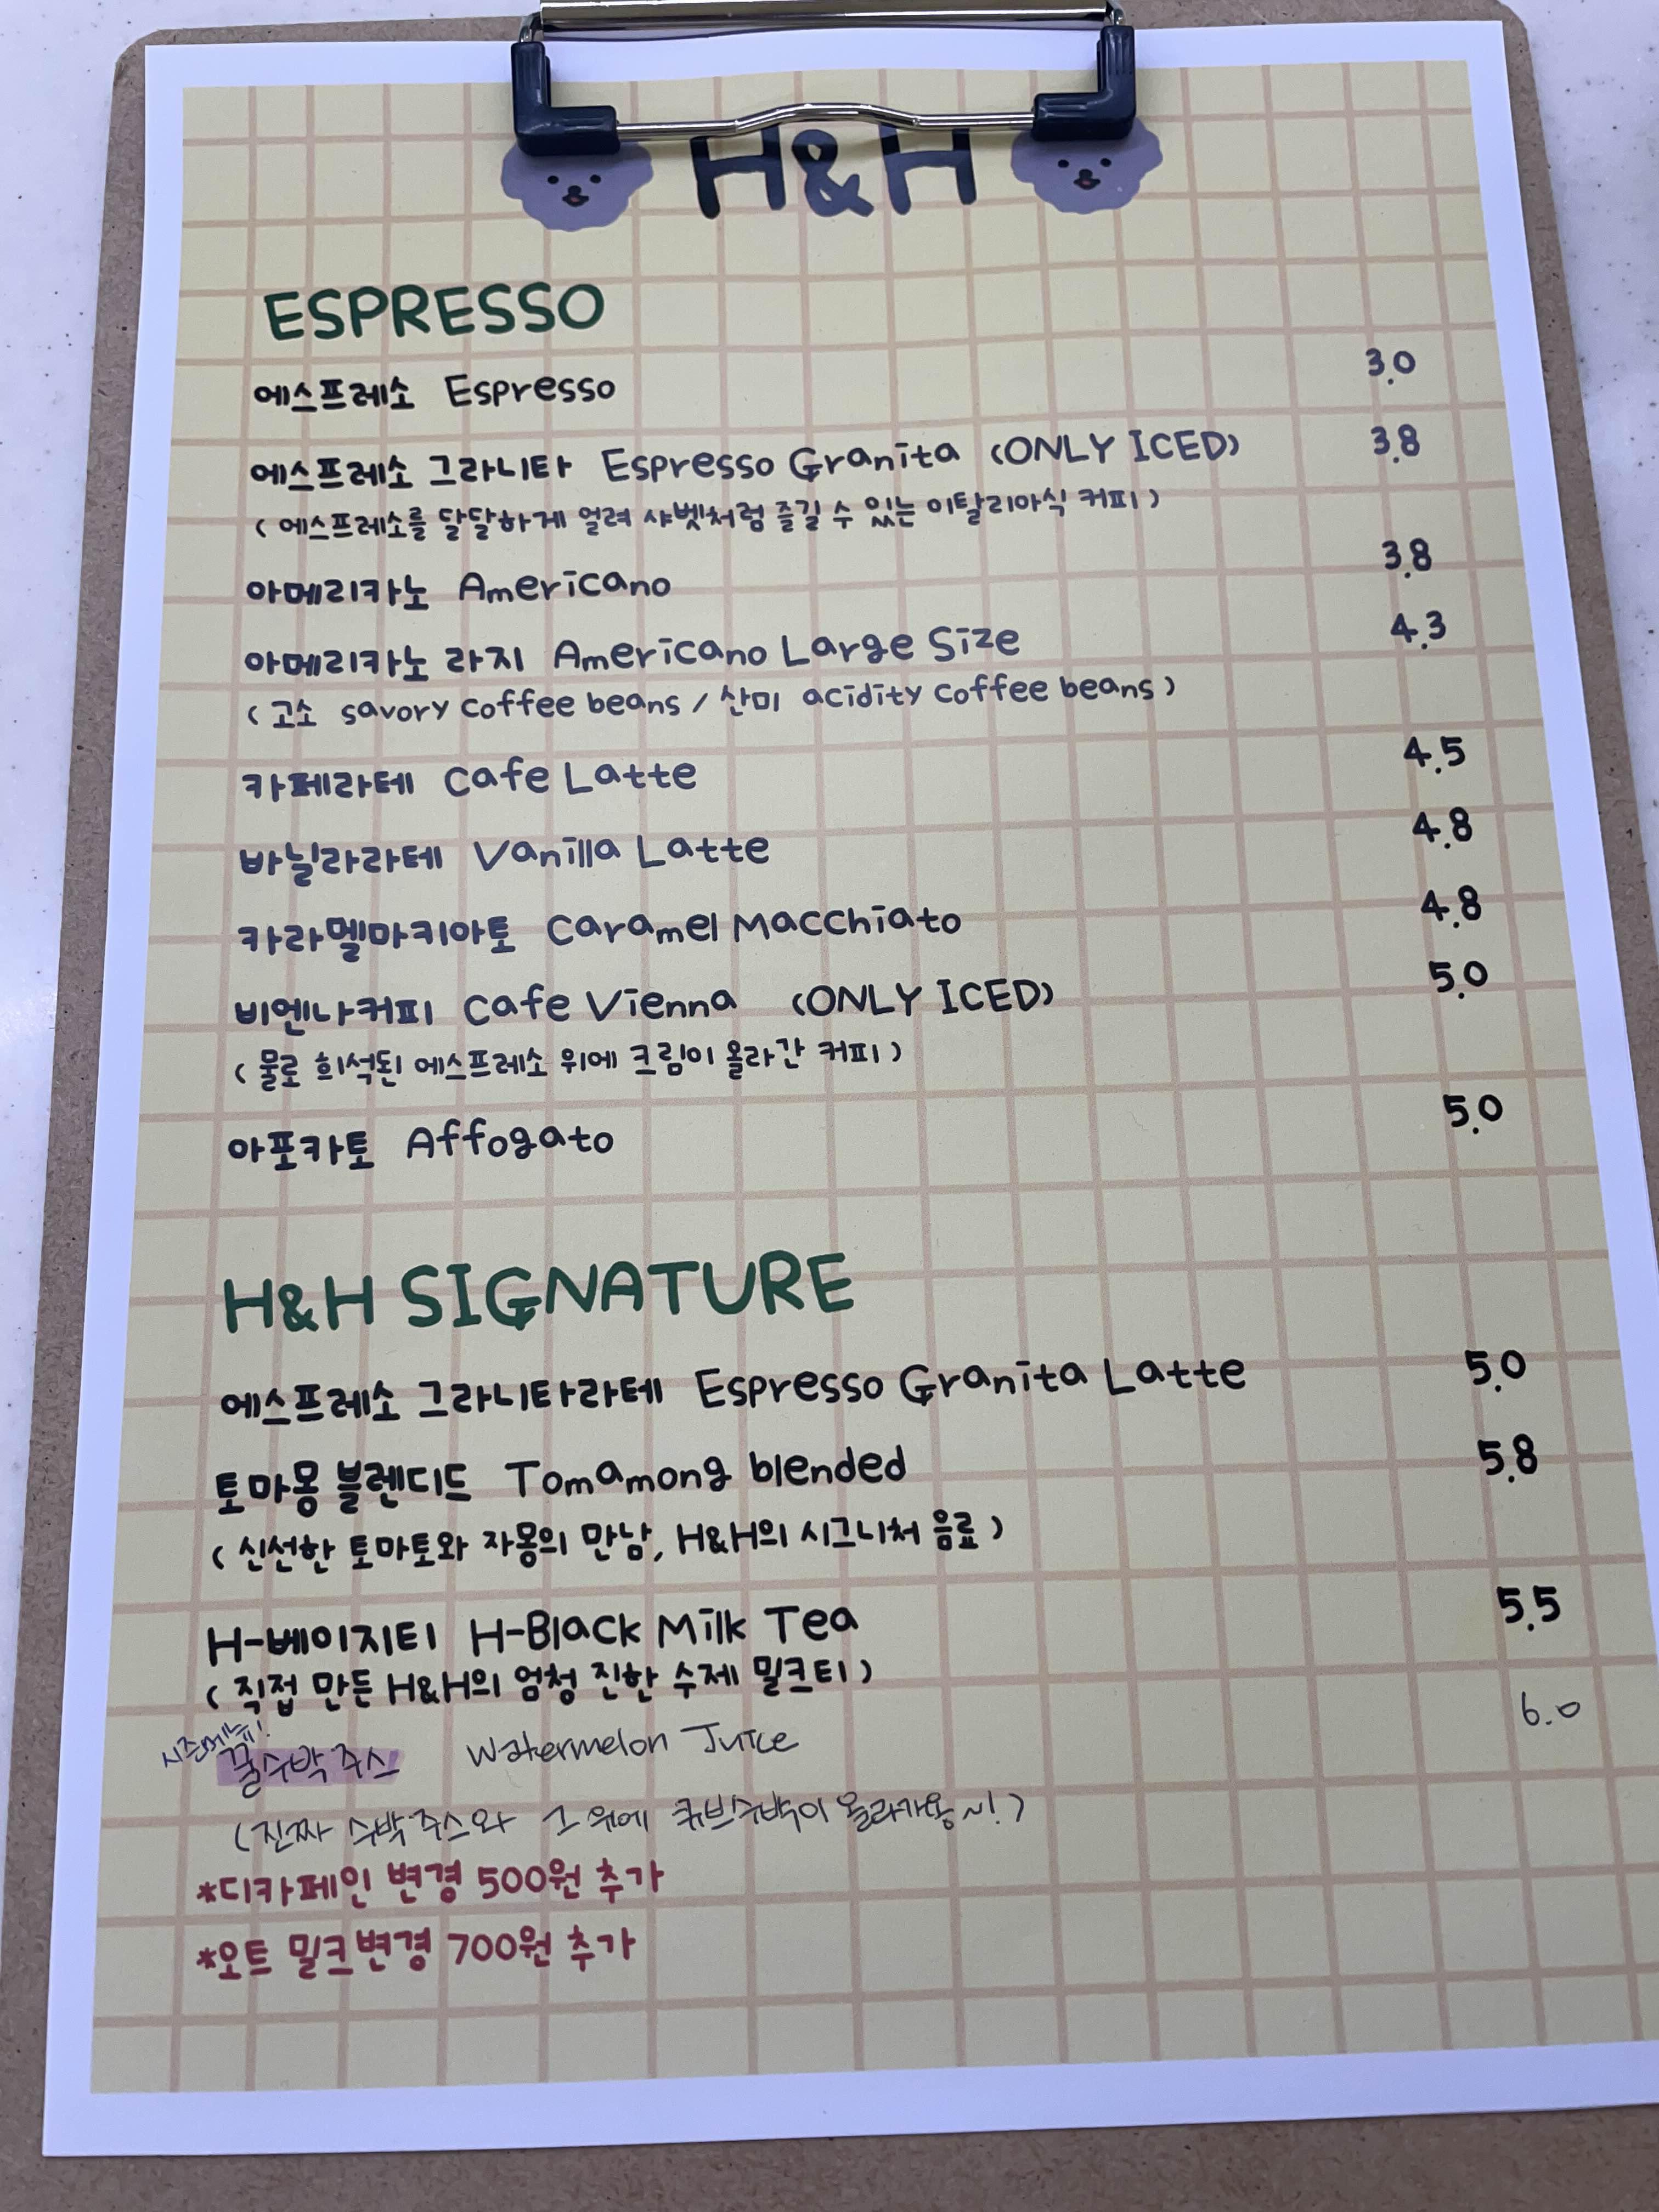 H&H
ESPRESSO
에스프레소 Espresso 3.0
에스프레소 그라니타 Espresso Granita (ONLY ICED) 3.8
( 에스프레소를 달달하게 얼려 샤벳처럼 즐길 수 있는 이탈리아식 커피 )
아메리카노 Americano 3.8
아메리카노 라지 Americano Large Size 4.3
( 고소 savory coffee beans / 산미 acidity coffee beans )
카페라테 Cafe Latte 4.5
바닐라라테 Vanilla Latte 4.8
카라멜마키아토 Caramel Macchiato 4.8
비엔나커피 Cafe Vienna (ONLY ICED) 5.0
( 물로 희석된 에스프레소 위에 크림이 올라간 커피 )
아포카토 Affogato 5.0
H&H SIGNATURE
에스프레소 그라니타라테 Espresso Granita Latte 5.0
토마몽 블렌디드 Tomamong blended 5.8
( 신선한 토마토와 자몽의 만남, H&H의 시그니처 음료 )
H-베이지티 H-Black Milk Tea 5.5
( 직접 만든 H&H의 엄청 진한 수제 밀크티 )
시즌메뉴!
꿀수박주스 Watermelon Juice 6.0
(진짜 수박주스와 그 위에 큐브수박이 올라가용~!)
*디카페인 변경 500원 추가
*오트 밀크변경 700원 추가